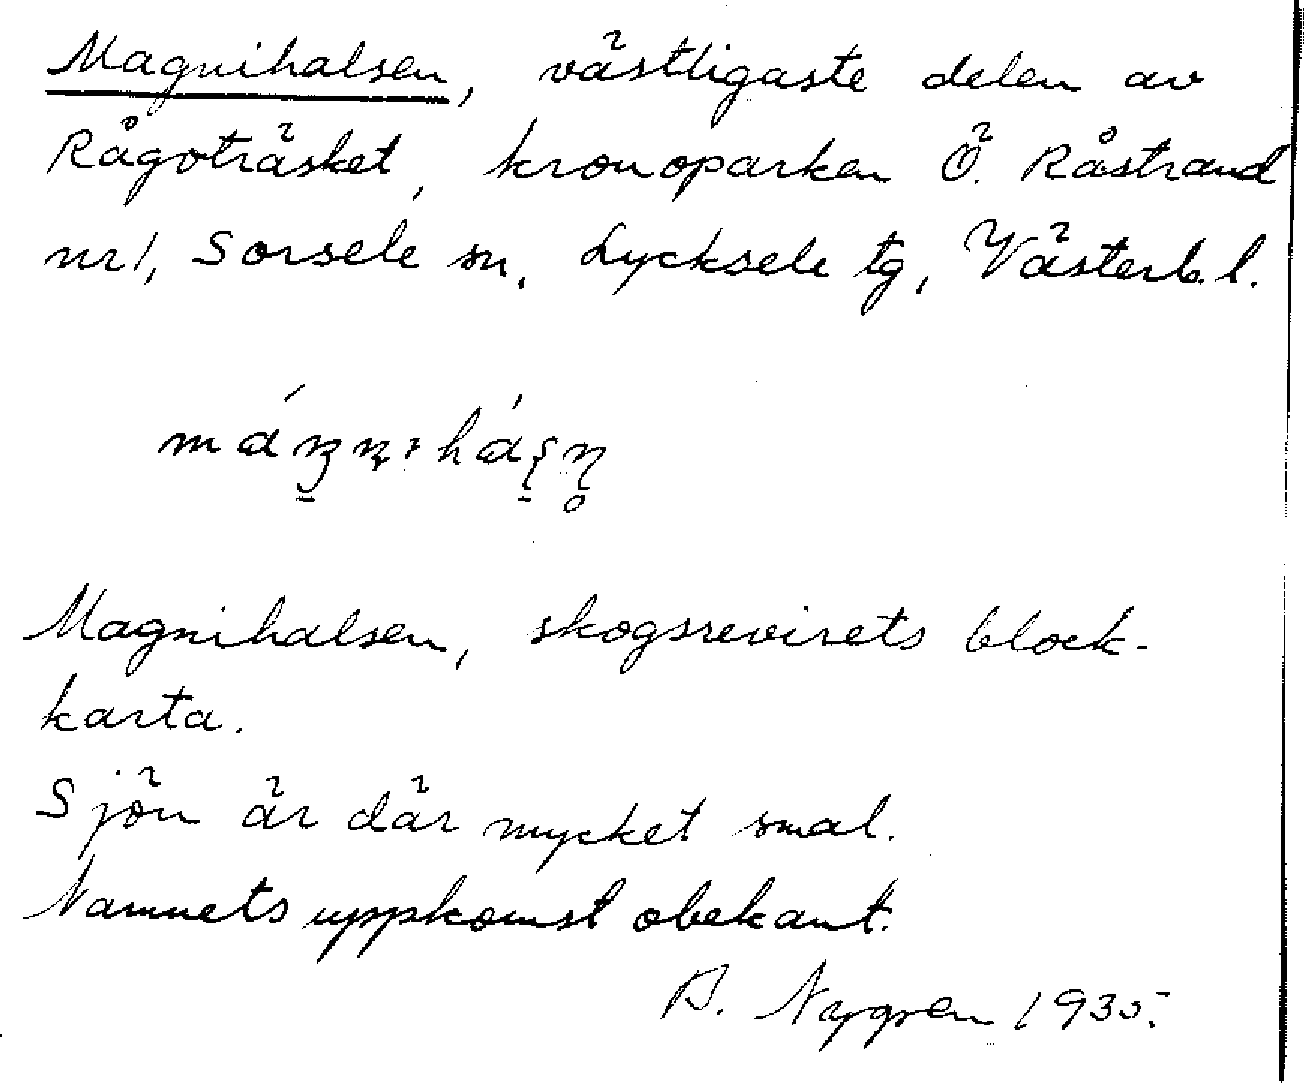 Magnihalsen, västligaste delen av
Rågoträsket, kronoparken Ö. Råstrand
nr 1, Sorsele sn, Lycksele tg, Västerb. l.
Magnihalsen, skogsrevirets block-
karta.
Sjön är där mycket smal.
Namnets uppkomst obekant.
A. Nygren 1935.